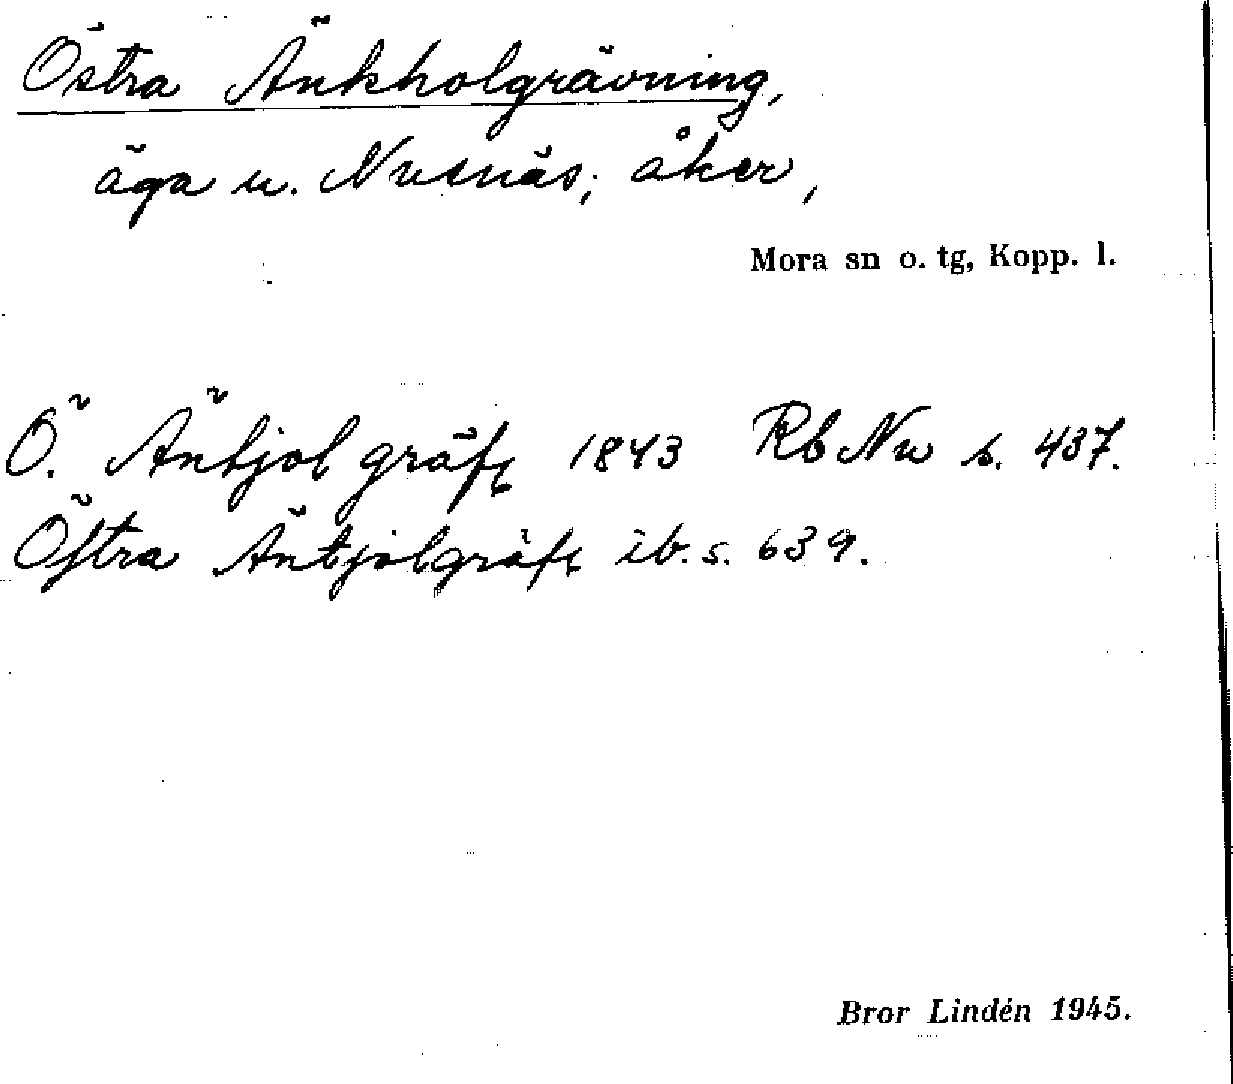 Östra Änkholgrävning,
äga u. Nusnäs; åker,
Mora sn o. tg, Kopp. l.
Ö. Äntjol gräfg 1843 Rb Nu s. 437.
Östra Äntjolgräfg ib. s. 639.
Bror Lindén 1945.